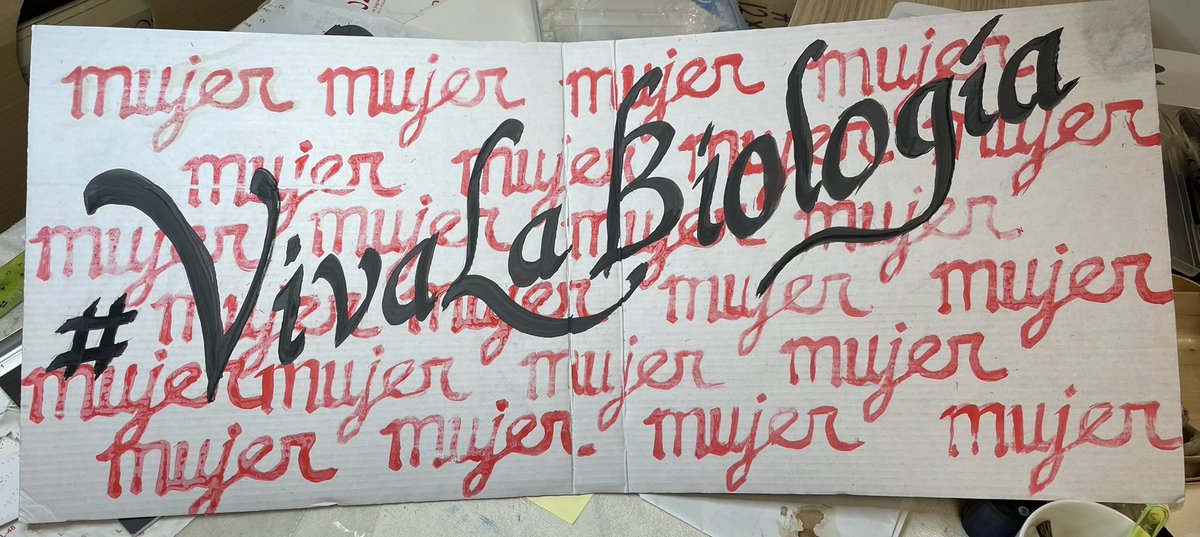 mujer mujer mujer mujer
mujer mujer mujer mujer
mujer mujer mujer mujer
#VivaLaBiología
mujer mujer mujer mujer
mujer mujer mujer mujer
mujer mujer mujer mujer